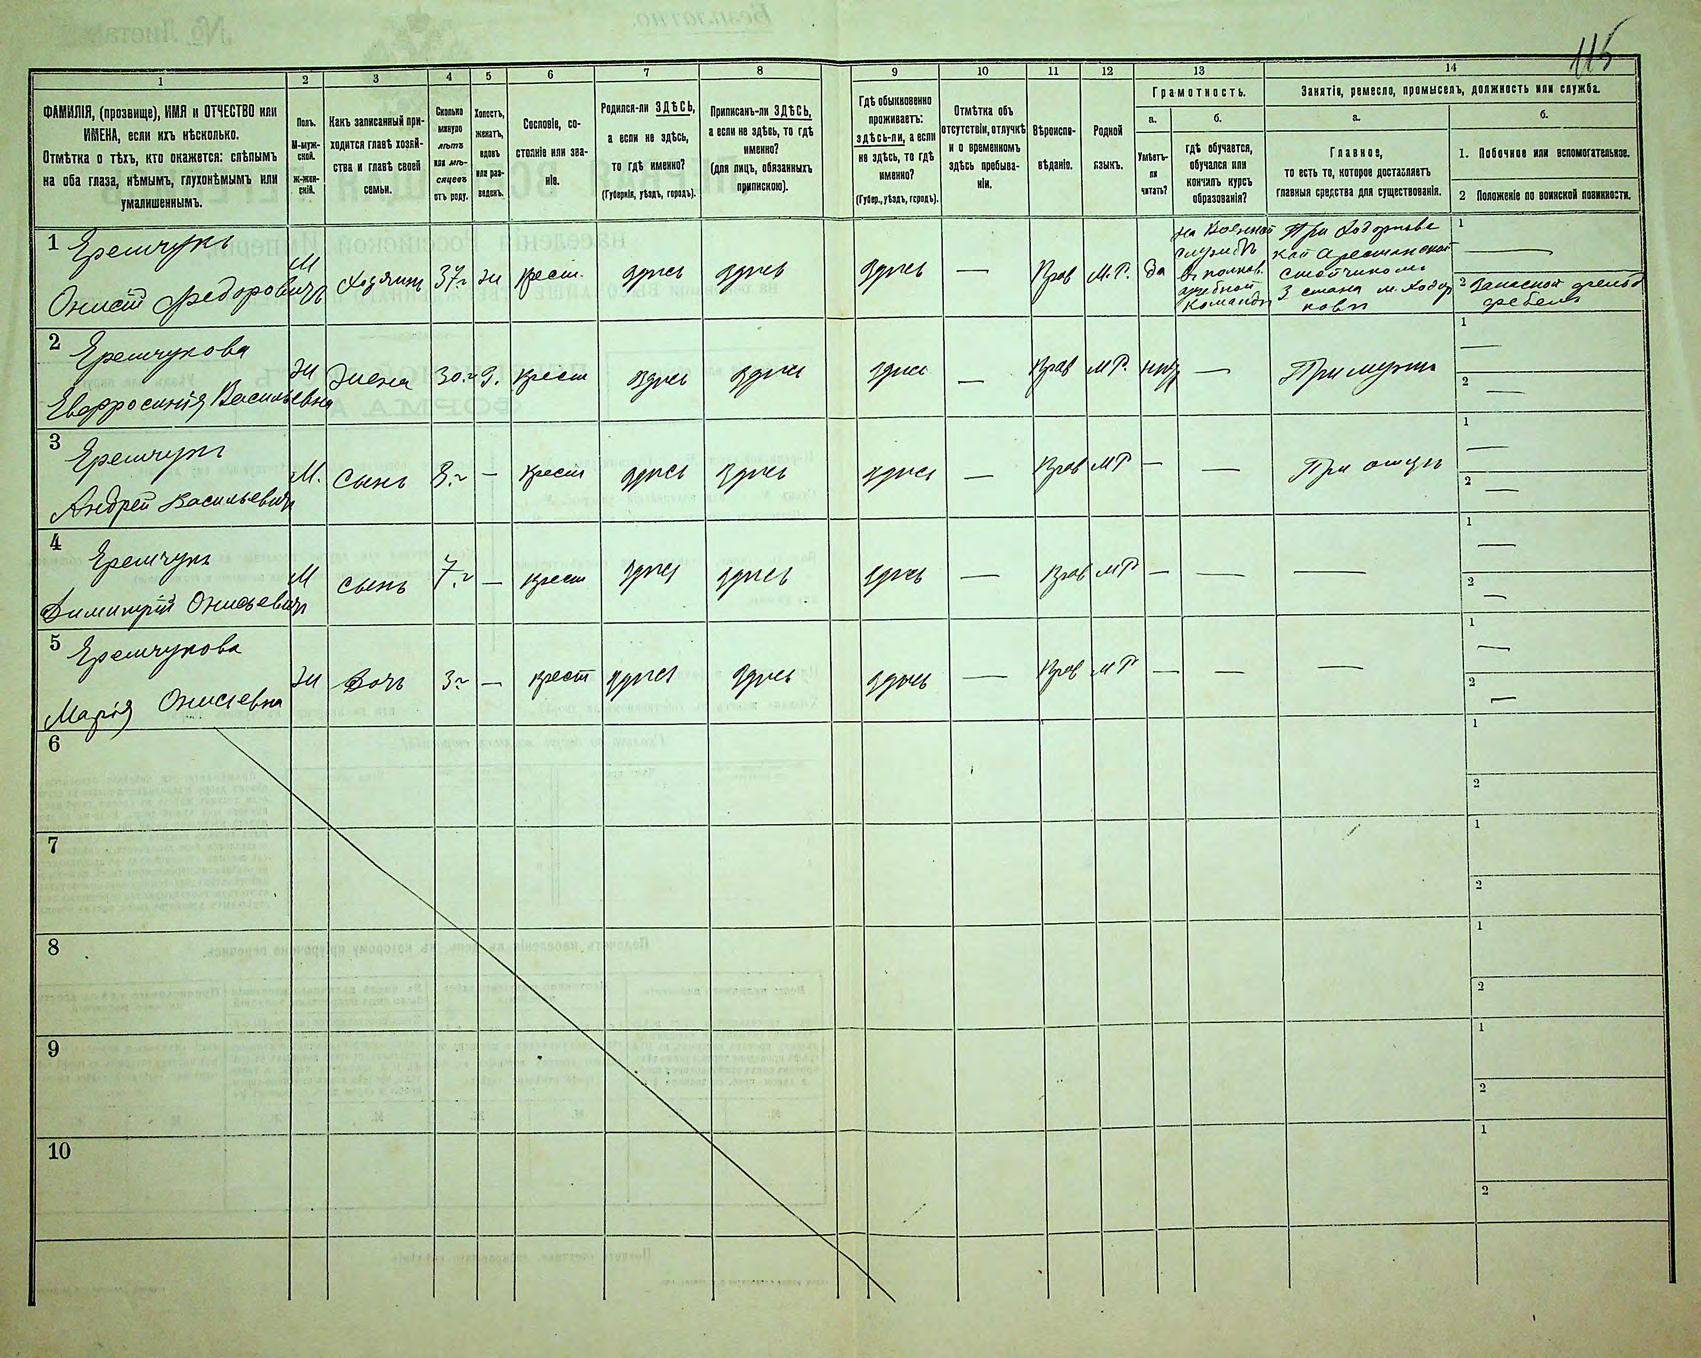 115
1 2 3 4 5 6 7 8 9 10 11 12 13 14
ФАМИЛІЯ, (прозвище), ИМЯ и ОТЧЕСТВО или
ИМЕНА, если ихъ нѣсколько.
Отмѣтка о тѣхъ, кто окажется: слѣпымъ
на оба глаза, нѣмымъ, глухонѣмымъ или
умалишеннымъ.
Полъ.
М-муж-
ской.
ж-жен-
скій.
Какъ записанный при-
ходится главѣ хозяй-
ства и главѣ своей
семьи.
Сколько
минуло
лѣтъ
или мѣ-
сяцевъ
отъ роду.
Холостъ,
женатъ,
вдовъ
или раз-
веденъ.
Сословіе, со-
стояніе или зва-
ніе.
Родился-ли ЗДѢСЬ,
а если не здѣсь,
то гдѣ именно?
(Губернія, уѣздъ, городъ).
Приписанъ-ли ЗДѢСЬ,
а если не здѣсь, то гдѣ
именно?
(для лицъ, обязанныхъ
припискою).
Гдѣ обыкновенно
проживаетъ:
здѣсь-ли, а если
не здѣсь, то гдѣ
именно?
(Губер., уѣздъ, городъ).
Отмѣтка объ
отсутствіи, отлучкѣ
и о временномъ
здѣсь пребыва-
ніи.
Вѣроиспо-
вѣданіе.
Родной
языкъ.
Грамотность.
а.
Умѣетъ-
ли
читать?
б.
гдѣ обучается,
обучался или
кончилъ курсъ
образованія?
Занятіе, ремесло, промыселъ, должность или служба.
а.
Главное,
то есть то, которое доставляетъ
главныя средства для существованія.
б.
1. Побочное или вспомогательное.
2 Положеніе по воинской повинности.
1 Еремчукъ
Онисій Федоровичъ
М Хозяинъ 37 г ж крест. здѣсь здѣсь здѣсь — Прав М.Р. да
на военной
службѣ
въ
учебной
команды
При Ходорков
ской арестанской
3 стана м. Ходор
ковѣ
1 —
2 Запасной фельд
фебель
2 Еремчукова
Евфросинія Васильевна
ж жена 30. г з. крест здѣсь здѣсь здѣсь — Прав М Р. нѣтъ — При мужѣ
1 —
2 —
3 Еремчукъ
Андрей Васильевичъ
М. сынъ 8. г — крест здѣсь здѣсь здѣсь — Прав М Р — — При отцѣ
1 —
2 —
4 Еремчукъ
Димитрій Онисьевичъ
М сынъ 7. г — крест здѣсь здѣсь здѣсь — Прав М Р — — —
1 —
2 —
5 Еремчукова
Марія Онисіевна
ж дочь 3 г — крест здѣсь здѣсь здѣсь — Прав М Р — — —
1 —
2 —
6 1
2
7 1
2
8 1
2
9 1
2
10 1
2